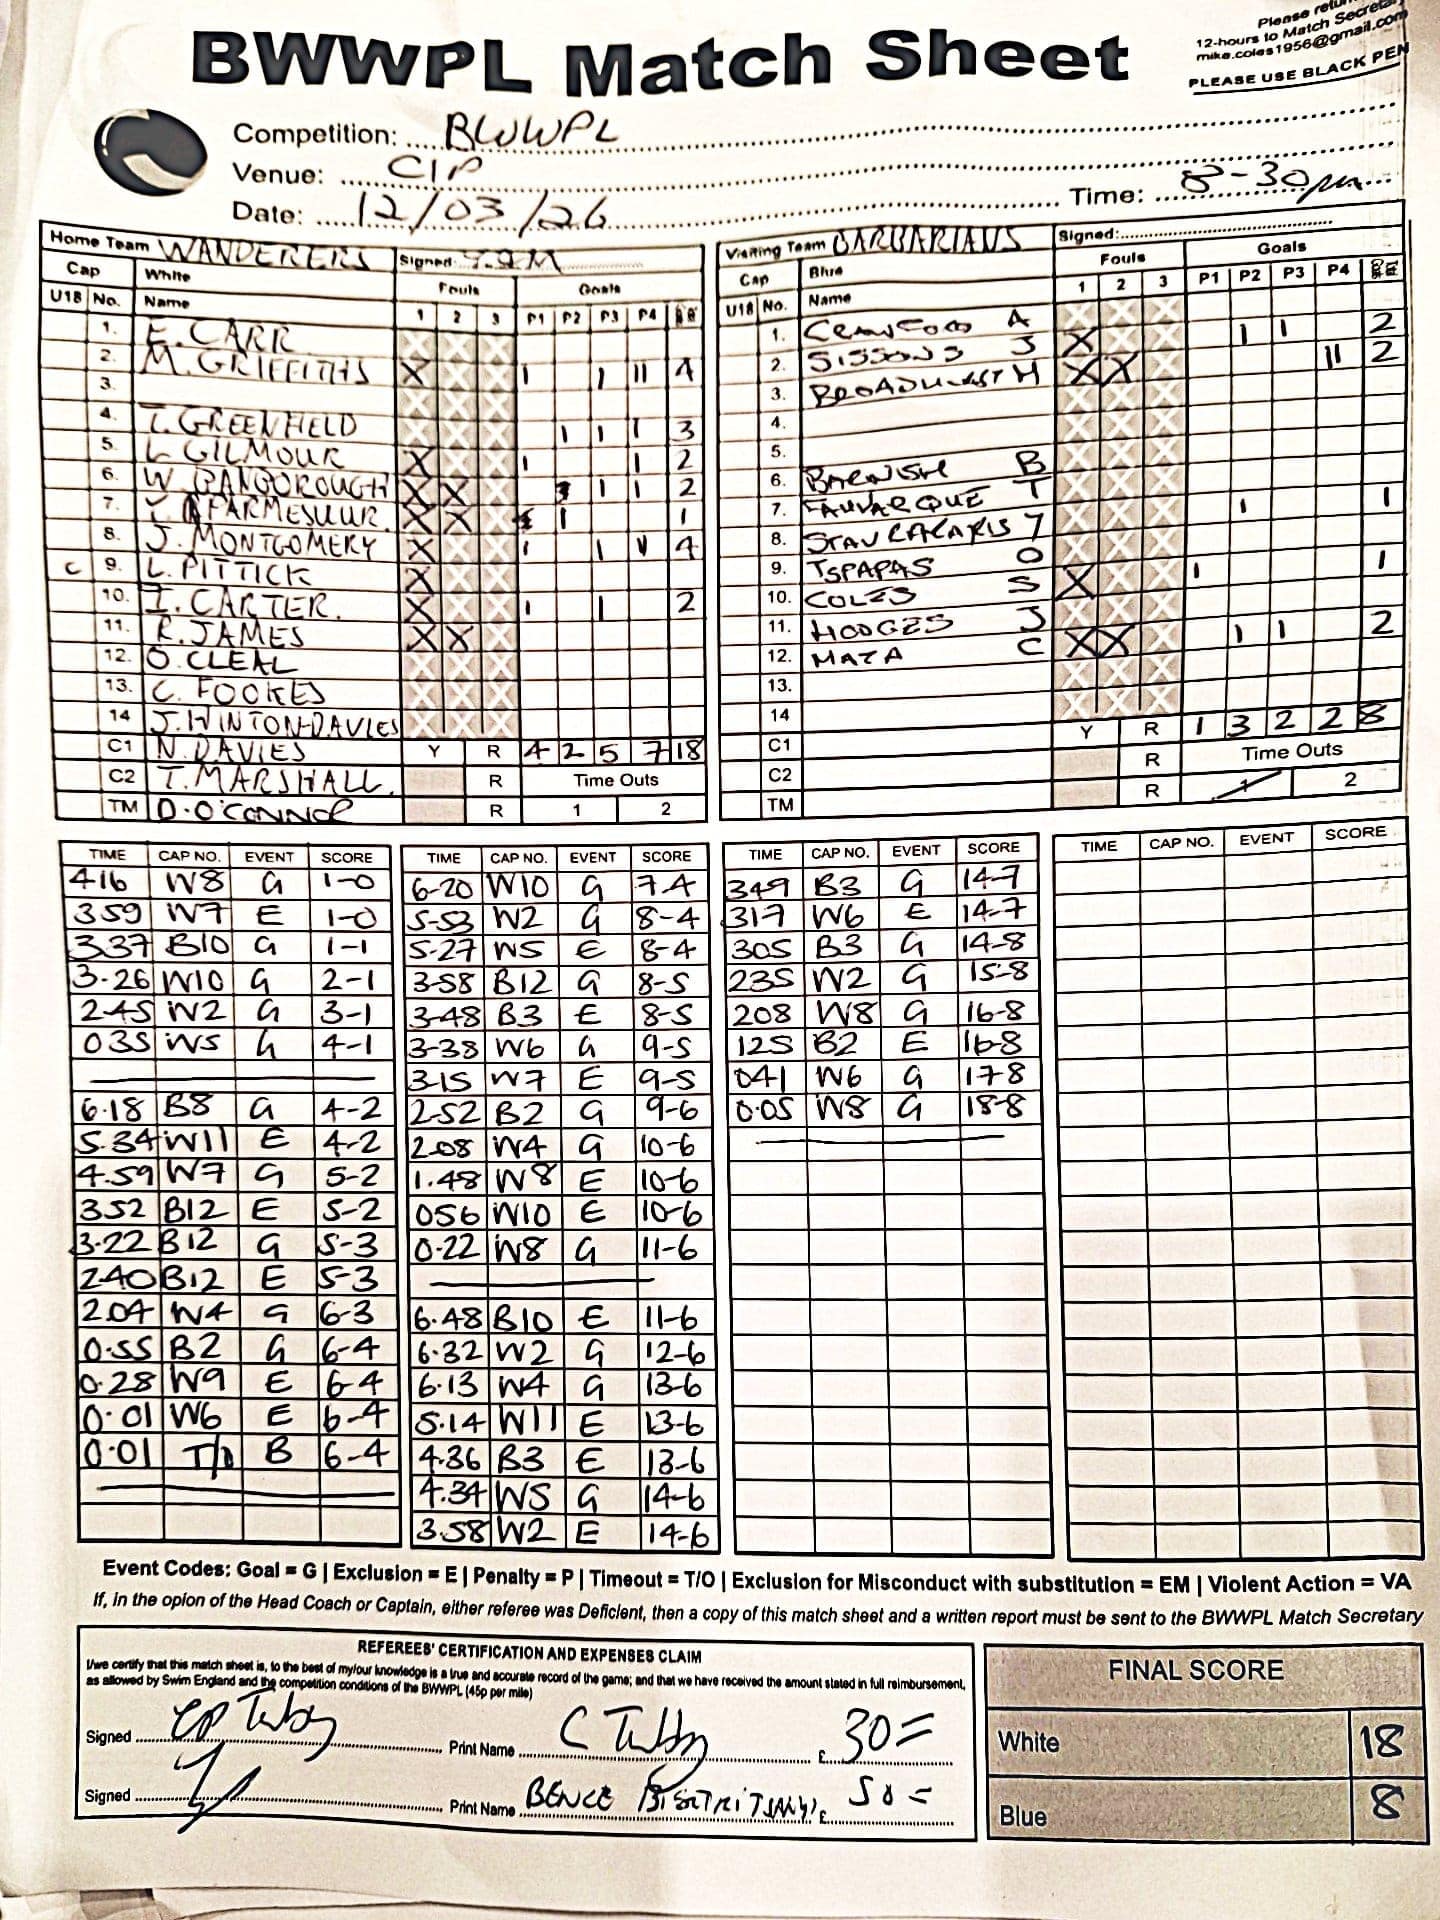 Please retur
12-hours to Match Secretary
mike.coles1956@gmail.com
PLEASE USE BLACK PEN
BWWPL Match Sheet
Competition: BWWPL
Venue: CIP
Date: 12/03/26 Time: 8-30pm
Home Team WANDERERS Signed:
Cap White Fouls Goals
U18 No. Name 1 2 3 P1 P2 P3 P4
1. E. CARR
2. M. GRIFFITHS X 1 1 11 4
3.
4. T. GREENFIELD 1 1 1 3
5. L GILMOUR X 1 1 2
6. W. BANBOROUGH X X 1 1 2
7. FARMESUUR. X X 1 1
8. J. MONTGOMERY X 1 1 11 4
C 9. L. PITTICK X
10. I. CARTER. X 1 1 2
11. R. JAMES X X
12. O. CLEAL
13. C. FOOKES
14 J. HINTON-DAVIES
C1 N. DAVIES Y R 4 2 5 7 18
C2 T. MARSHALL. R Time Outs
TM D. O'CONNOR R 1 2
Visiting Team BARBARIANS Signed:
Cap Blue Fouls Goals
U18 No. Name 1 2 3 P1 P2 P3 P4
1. CRAWFORD A
2. SISSONS J X 1 1 2
3. BROADHURST M X X 11 2
4.
5.
6. BARNISH B
7. FAUVARQUE T
8. STAVRAKAKIS Y 1 1
9. TSPAPAS O
10. COLES S X 1 1
11. HODGES J
12. MATA C X X 1 1 2
13.
14
C1 Y R 1 3 2 2 8
C2 R Time Outs
TM R 1 2
TIME CAP NO. EVENT SCORE
416 W8 G 1-0
359 W7 E 1-0
337 B10 G 1-1
3-26 W10 G 2-1
245 W2 G 3-1
035 W5 G 4-1
6.18 B8 G 4-2
5.34 W11 E 4-2
4.59 W7 G 5-2
352 B12 E 5-2
3-22 B12 G 5-3
240 B12 E 5-3
204 W4 G 6-3
0.55 B2 G 6-4
0.28 W9 E 6-4
0.01 W6 E 6-4
0.01 T/O B 6-4
TIME CAP NO. EVENT SCORE
6-20 W10 G 7-4
5-53 W2 G 8-4
5-27 W5 E 8-4
3-58 B12 G 8-5
3-48 B3 E 8-5
3-38 W6 G 9-5
3-15 W7 E 9-5
2-52 B2 G 9-6
2.08 W4 G 10-6
1.48 W8 E 10-6
056 W10 E 10-6
0-22 W8 G 11-6
6.48 B10 E 11-6
6.32 W2 G 12-6
6.13 W4 G 13-6
5.14 W11 E 13-6
4.36 B3 E 13-6
4.34 W5 G 14-6
3.58 W2 E 14-6
TIME CAP NO. EVENT SCORE
349 B3 G 14-7
317 W6 E 14-7
305 B3 G 14-8
235 W2 G 15-8
208 W8 G 16-8
125 B2 E 16-8
041 W6 G 17-8
0.05 W8 G 18-8
TIME CAP NO. EVENT SCORE
Event Codes: Goal = G | Exclusion = E | Penalty = P | Timeout = T/O | Exclusion for Misconduct with substitution = EM | Violent Action = VA
If, in the opion of the Head Coach or Captain, either referee was Deficient, then a copy of this match sheet and a written report must be sent to the BWWPL Match Secretary
REFEREES' CERTIFICATION AND EXPENSES CLAIM
I/we certify that this match sheet is, to the best of my/our knowledge is a true and accurate record of the game; and that we have received the amount stated in full reimbursement,
as allowed by Swim England and the competition conditions of the BWWPL (45p per mile)
Signed Print Name C Tubby £ 30=
Signed Print Name BENCE £ 50=
FINAL SCORE
White 18
Blue 8